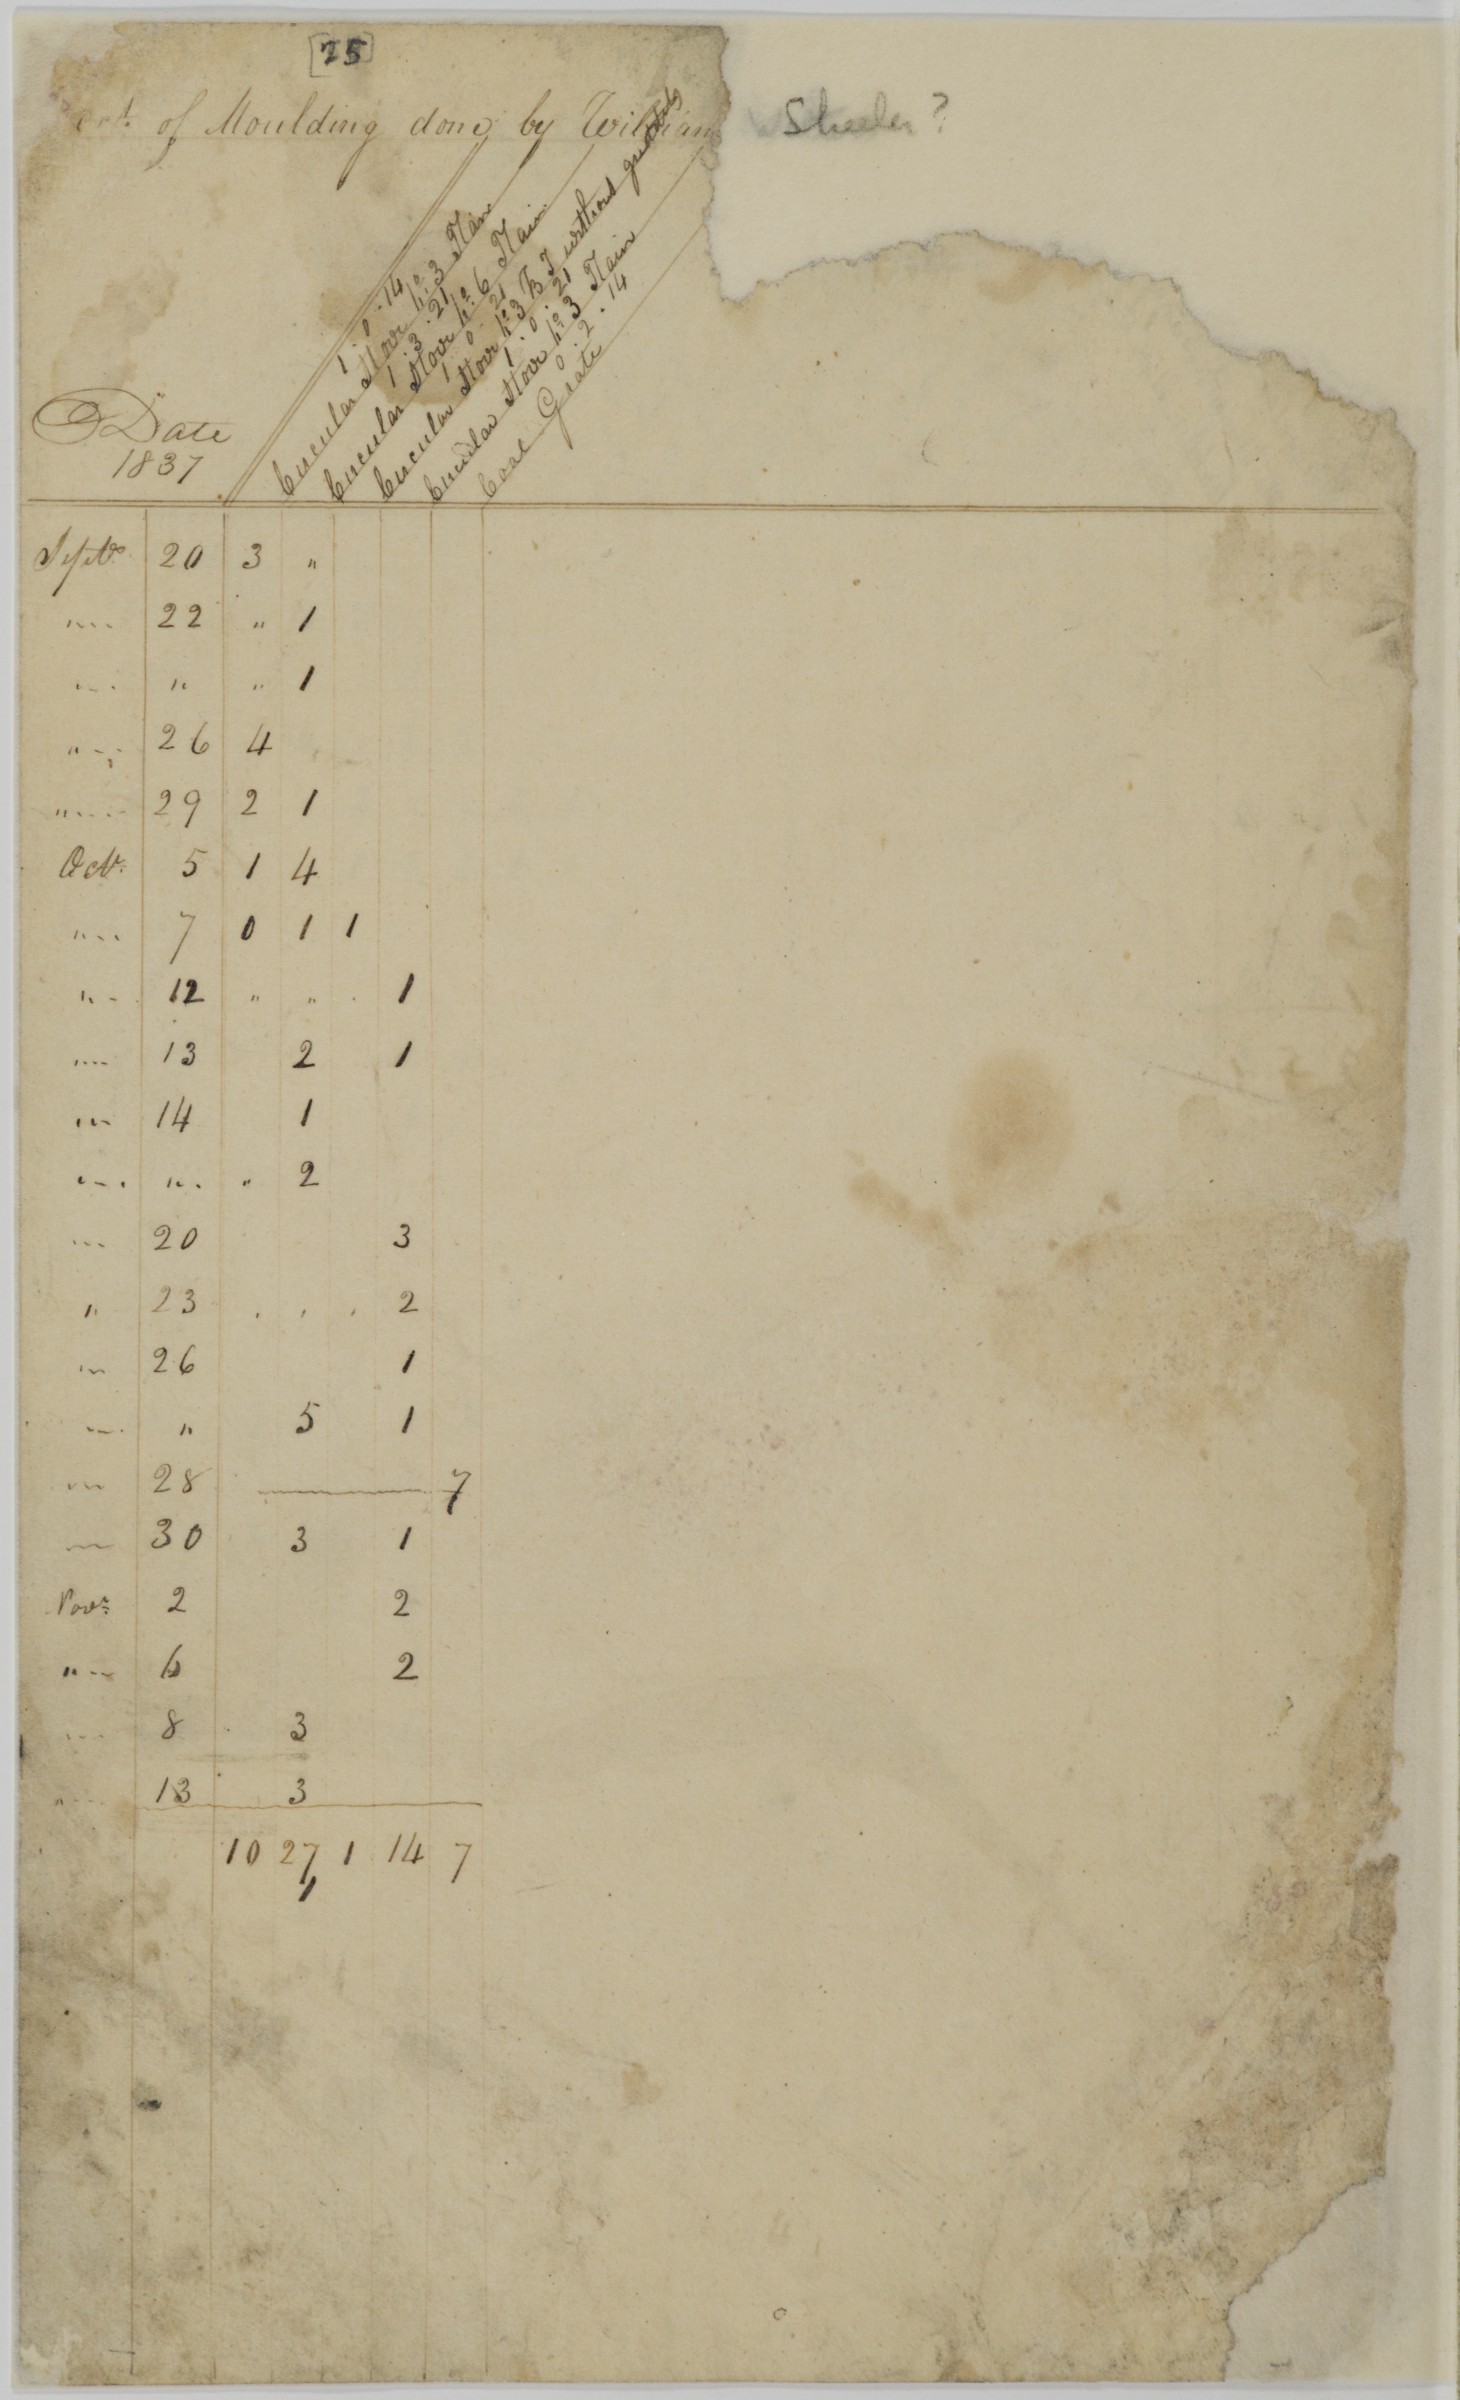 [75]
cct. of Moulding done by William Skeeler?
1 . 0 . 14
Circular Stove No. 3 Plain
1 . 3 . 21
Circular Stove No. 6 Plain
1 . 0 . 21
Circular Stove No. 3 B J without
1 . 0 . 21
Circular Stove No. 3 Plain
0 . 2 . 14
Coal Grate
Date
1837
Septr. 20 3 "
"... 22 " 1
"... " " 1
"... 26 4
"... 29 2 1
Oct. 5 1 4
"... 7 0 1 1
"... 12 " " . 1
"... 13 2 1
"... 14 1
"... " " 2
"... 20 3
" 23 . . . 2
" 26 1
"... " 5 1
"... 28 7
"... 30 3 1
Novr. 2 2
"... 6 2
"... 8 3
"... 13 3
10 27 1 14 7